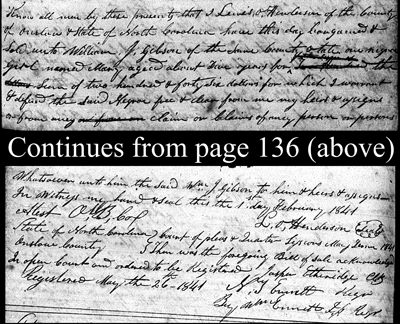 Know all men by these presents that I Lewis O. Henderson of the County
of Onslow & State of North Carolina have this day bargained &
Sold unto William J. Gibson of the Same County & State one negro
girl named Mary aged about five years for the
Sum of two hundred & forty six dollars for which I warrant
& defend the said Negroe free & clear from me my heirs & assigns
or from any claim or claims of any person or persons
Continues from page 136 (above)
Whatsoever unto him the said Wm J Gibson to him & heirs & assigns
In witness my hand & seal this the 1 day February 1841
Attest L. O. Henderson Seal
State of North Carolina Court of pleas & Quarter Sessions May Term 1841
Onslow County Then was the foregoing Bill of sale acknowledged
In open Court and ordered to be Registered Jasper Etheridge Clk
Registered May the 26th 1841 Ennett Regr
By Ennett Regr